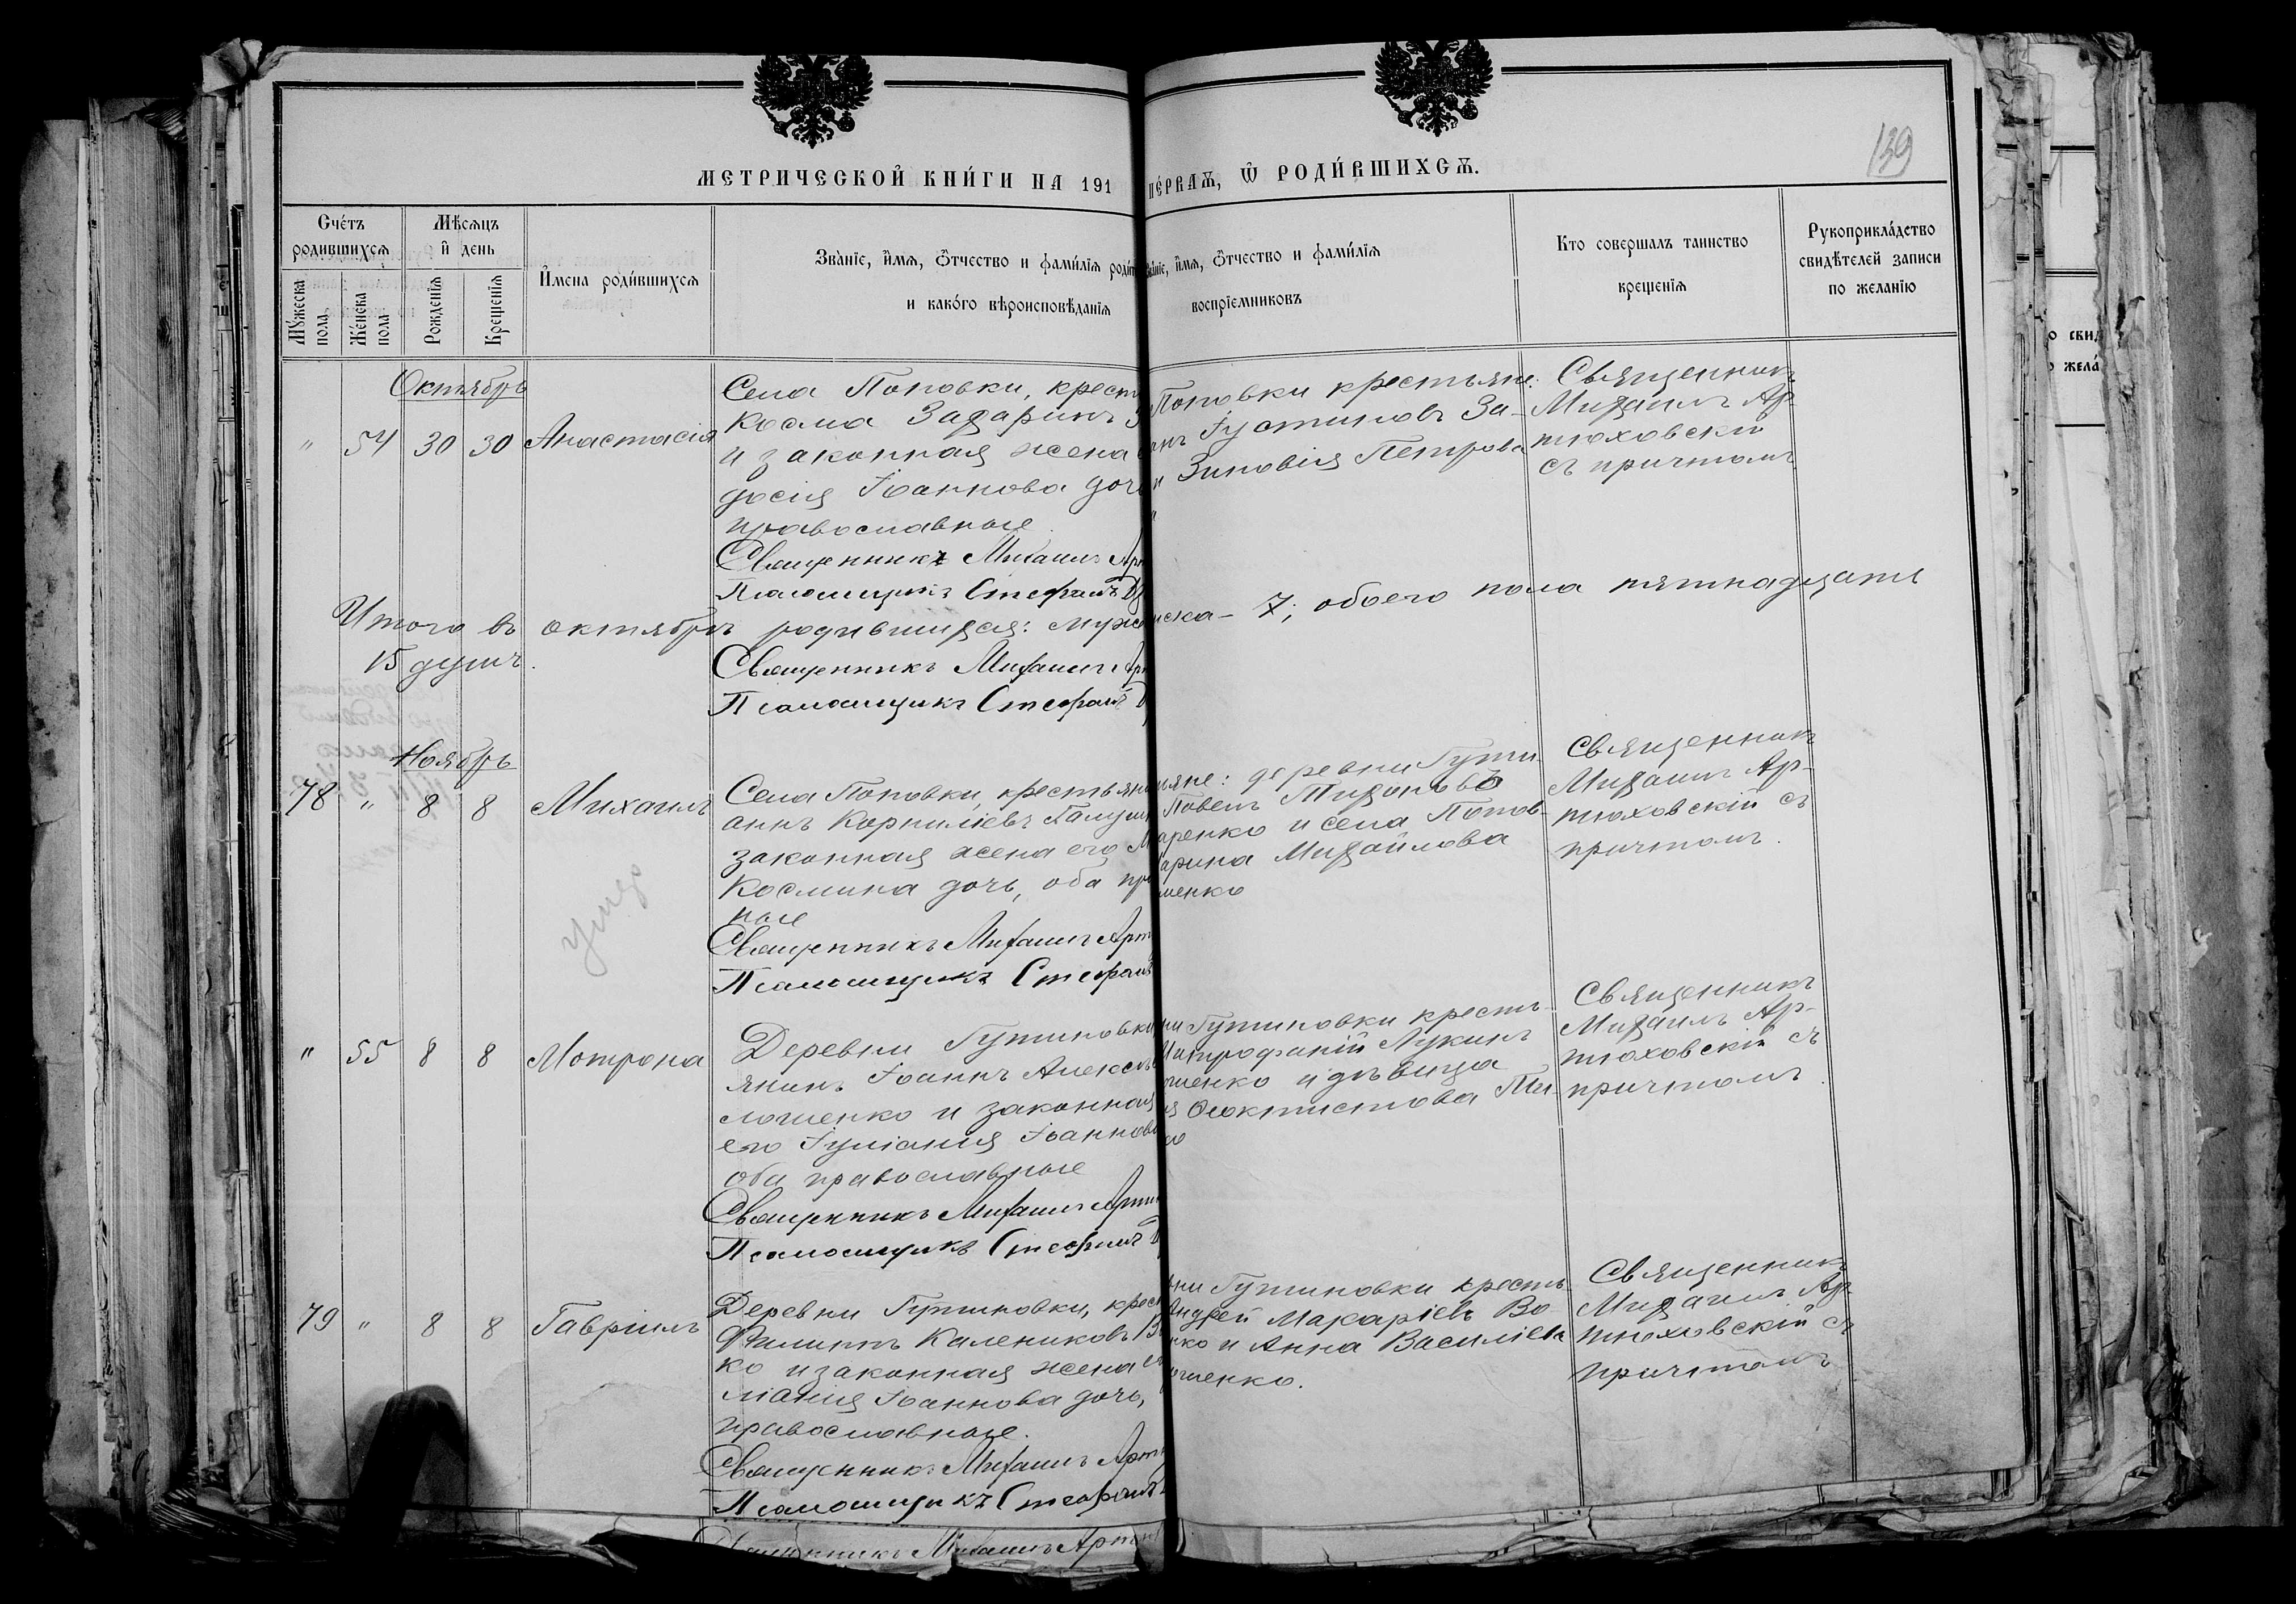 139
МЕТРИЧЕСКОЙ КНИГИ НА 191
ПЕРВАѦ, Ѿ РОДИВШИХСѦ.
Счетъ родившихсѧ
Мѣсѧцъ и день
Имена родившихсѧ
Званіе, имѧ, ѻтчество и фамиліѧ
и какого вѣроисповѣданіѧ
имѧ, ѻтчество и фамиліѧ
воспріемниковъ
Кто совершалъ таинство
крещеніѧ
Рукоприкладство
свидѣтелей записи
по желанію
Мужеска пола
Женска пола
Рожденіѧ
Крещеніѧ
Октябрь
" 54 30 30 Анастасія
Села Поповки,
Косма Захаринъ
и законная жена
досія Іоаннова
православные
Священникъ Михаилъ
Псаломщикъ Стефанъ
Поповки крестьяне:
Іустиновъ За-
Зиновія Петрова
Священникъ
Михаилъ Ар-
тюховскій
съ причтомъ
Итого въ октябрѣ родившихся:
7; обоего пола пятнадцать
15 душъ.
Священникъ Михаилъ
Псаломщикъ Стефанъ
Ноябрь
78 " 8 8 Михаилъ
Села Поповки,
Корниліевъ
законная жена его
Космина дочь, оба
ные
Священникъ Михаилъ
Псаломщикъ Стефанъ
умер
деревни Гути-
Павелъ Тихоновъ
и села Попов-
Михайлова
менко
Священникъ
Михаилъ Ар-
тюховскій съ
причтомъ.
" 55 8 8 Мотрона
Деревни Гутиновки
янинъ Іоаннъ
лошенко и законная
его Іуліанія
оба православные
Священникъ Михаилъ
Псаломщикъ Стефанъ
Гутиновки кресть-
Митрофаній Лукинъ
и дѣвица
Ѳеоктистова
Священникъ
Михаилъ Ар-
тюховскій съ
причтомъ.
79 " 8 8 Гавріилъ
Деревни Гутиновки,
Филиппъ Калениковъ
ко и законная жена
ліанія Іоаннова дочь,
православные.
Священникъ Михаилъ
Псаломщикъ Стефанъ
Гутиновки кресть-
Андрей Макаріевъ Во-
и Анна Василіева
шенко.
Священникъ
Михаилъ Ар-
тюховскій съ
причтомъ
Священникъ Михаилъ